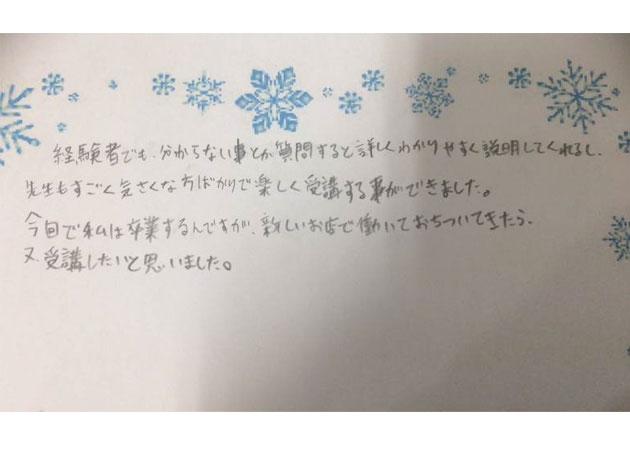 経験者でも、分からない事とか質問すると詳しくわかりやすく説明してくれるし、
先生もすごく気さくな方ばかりで楽しく受講する事ができました。
今回で私は卒業するんですが、新しいお店で働いておちついてきたら、
又、受講したいと思いました。